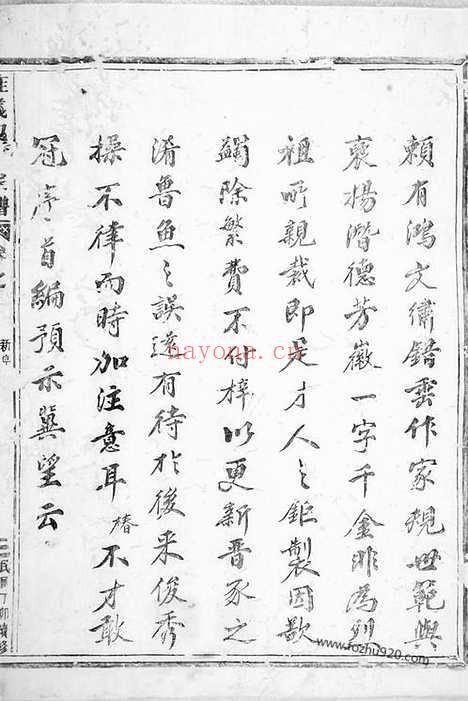 賴有鴻文繡錯雲作家規世範與
褒揚潛德芳徽一字千金非為列
祖所親裁即是才人之鉅製因歎
蠲除繁費不付梓以更新晋豕之
淆魯魚之誤遂有待於後來俊秀
操不律而時加注意耳椿不才敢
冠序首編預示冀望云
宗譜
hayona.cn
www.fozhu920.com